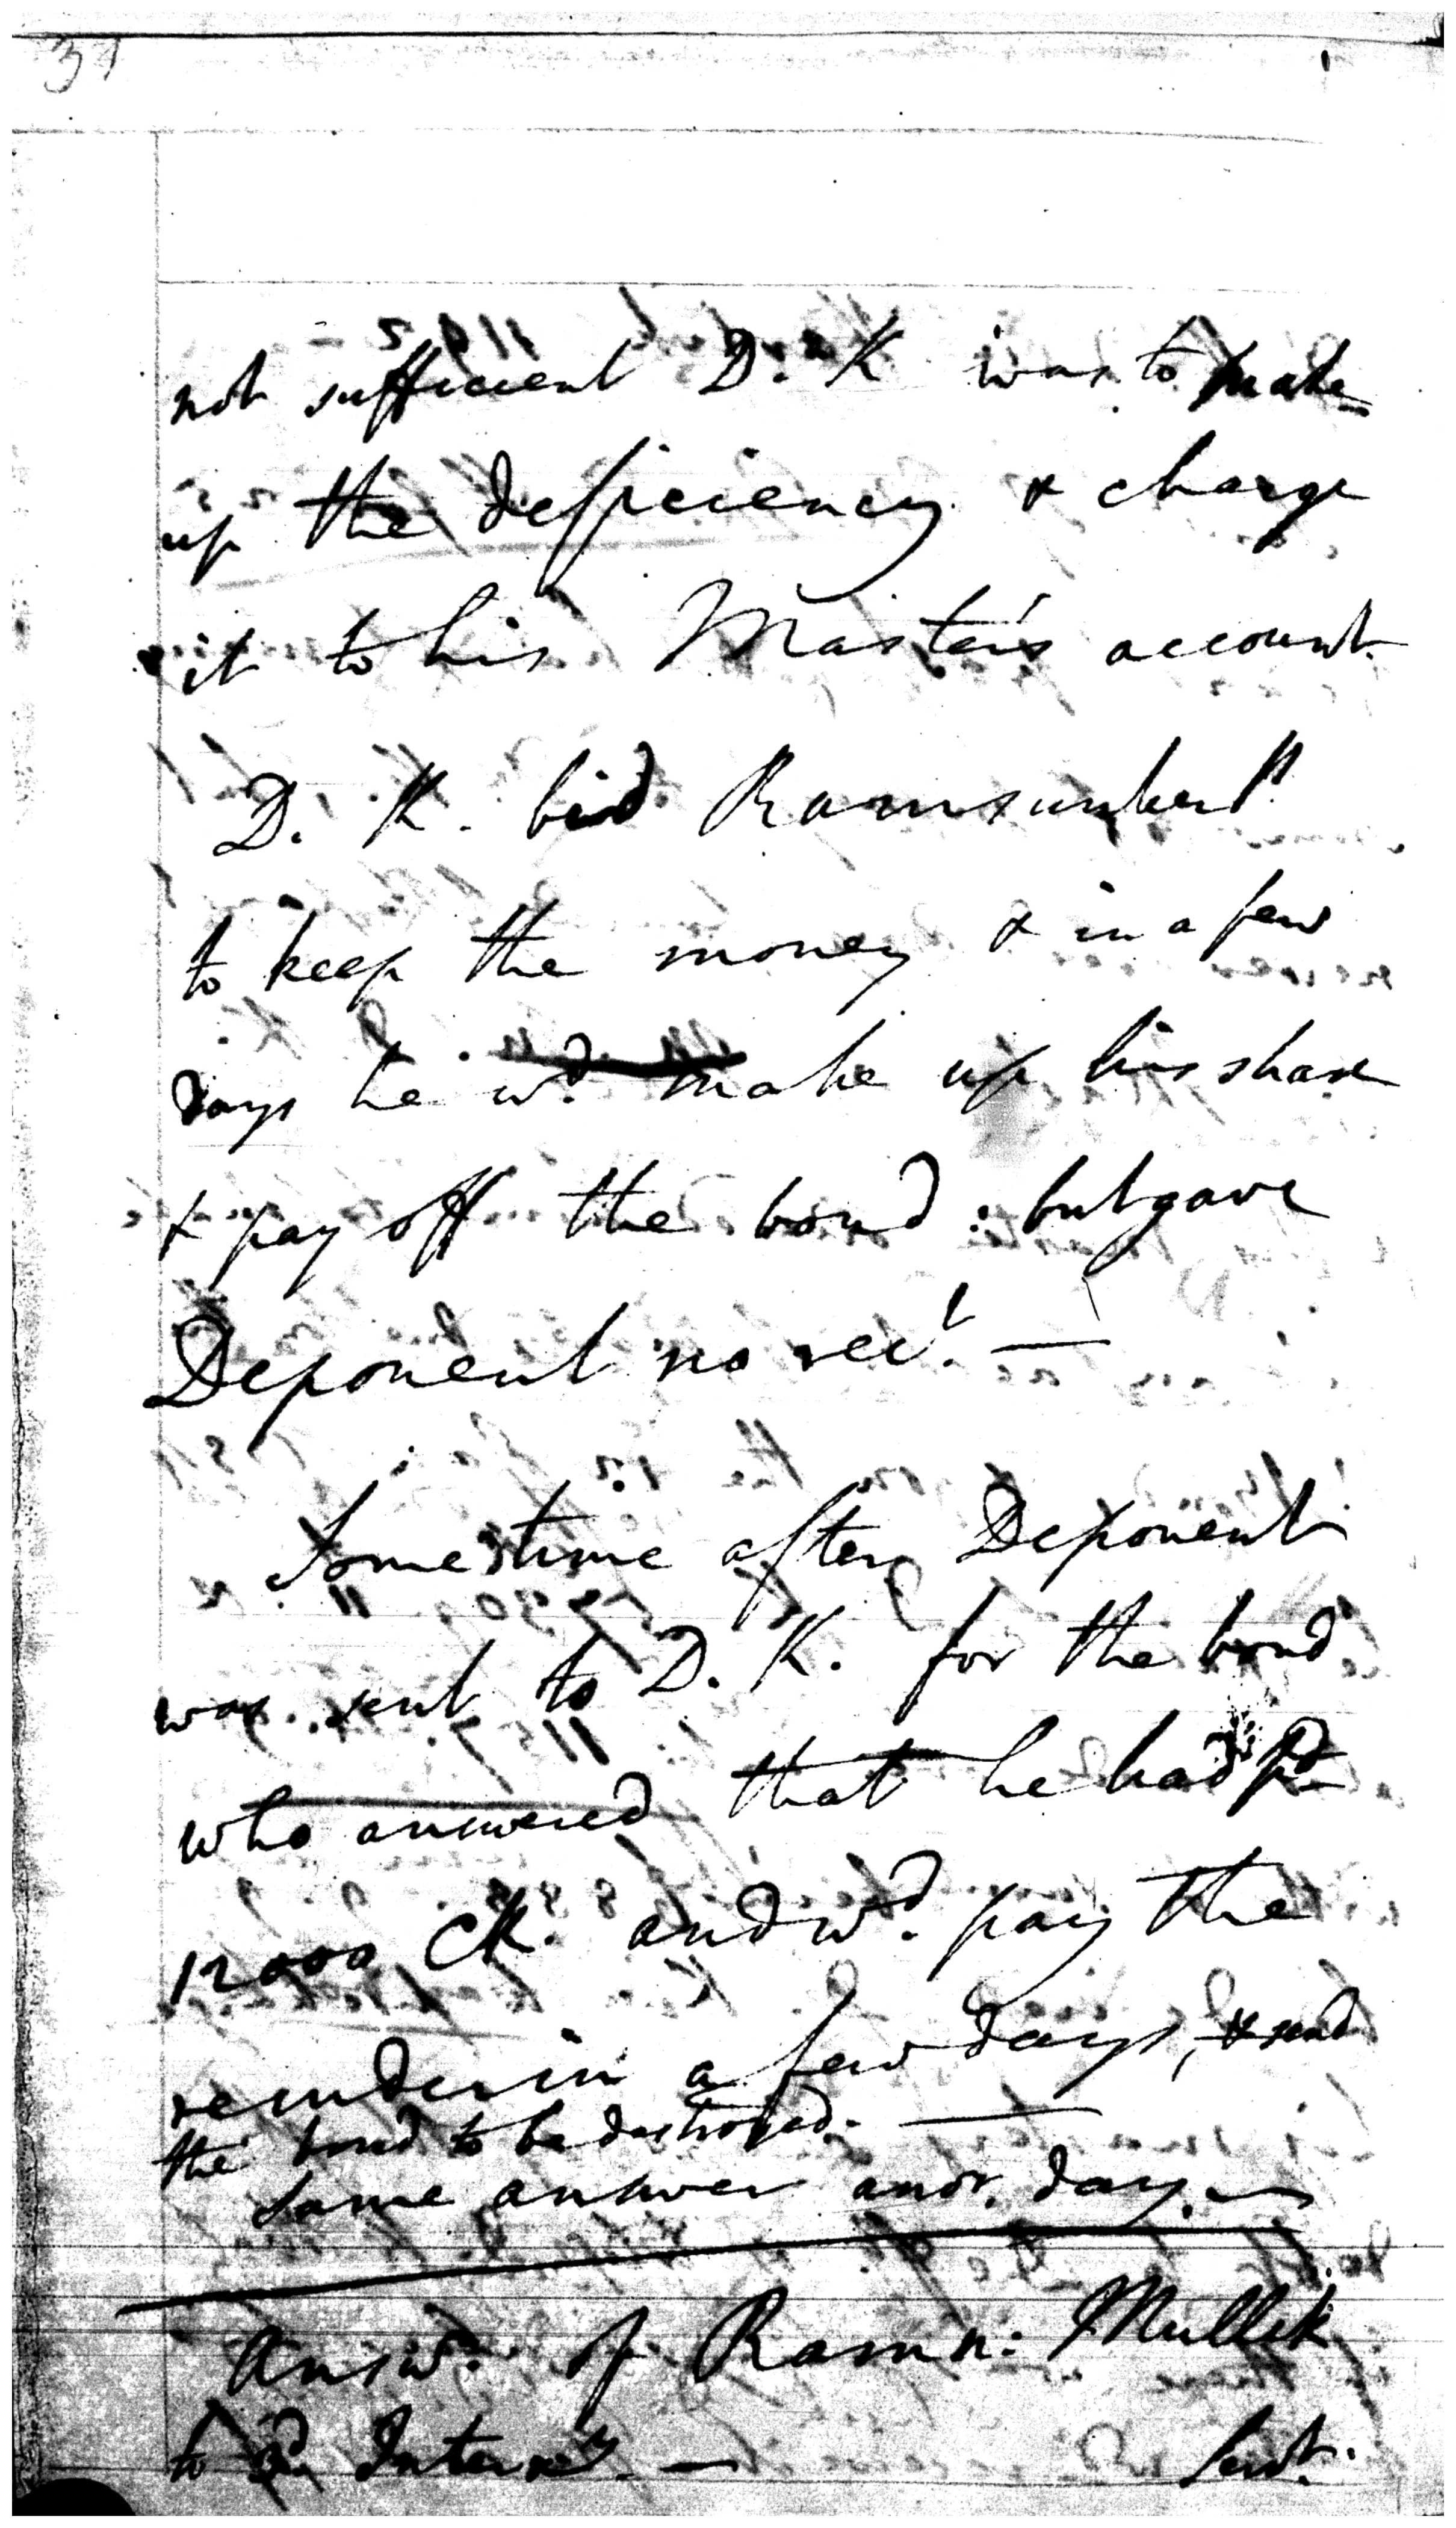 not sufficient D. K was to make
up the deficiency & charge
it to his Master's account.
D. K. bid Ramsunker
to keep the money & in a few
days he wd. make up his share
& pay off the bond: but gave
Deponent no rect. —
Sometime after Deponent
was sent to D. K. for the bond
who answered that he had pd.
12000 CR. and wd. pay the
remder in a few days, & send
the bond to be destroyed. —
Same answer anor. day. —
Answr. of Ramn: Mullik
to Interry. —